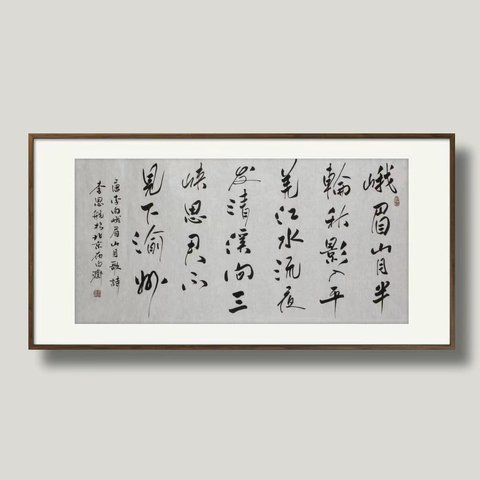 峨眉山月半
輪秋影入平
羌江水流夜
发清溪向三
峡思君不
見下渝州
唐李白峨眉山月歌詩
李思於北京